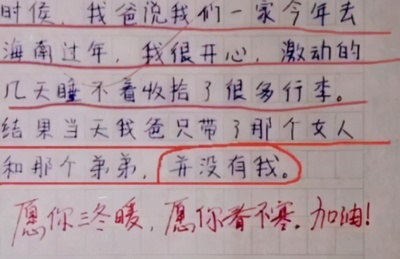 时侯，我爸说我们一家今年去
海南过年，我很开心，激动的
几天睡不着收拾了很多行李。
结果当天我爸只带了那个女人
和那个弟弟，并没有我。
愿你三冬暖，愿你春不寒。加油！